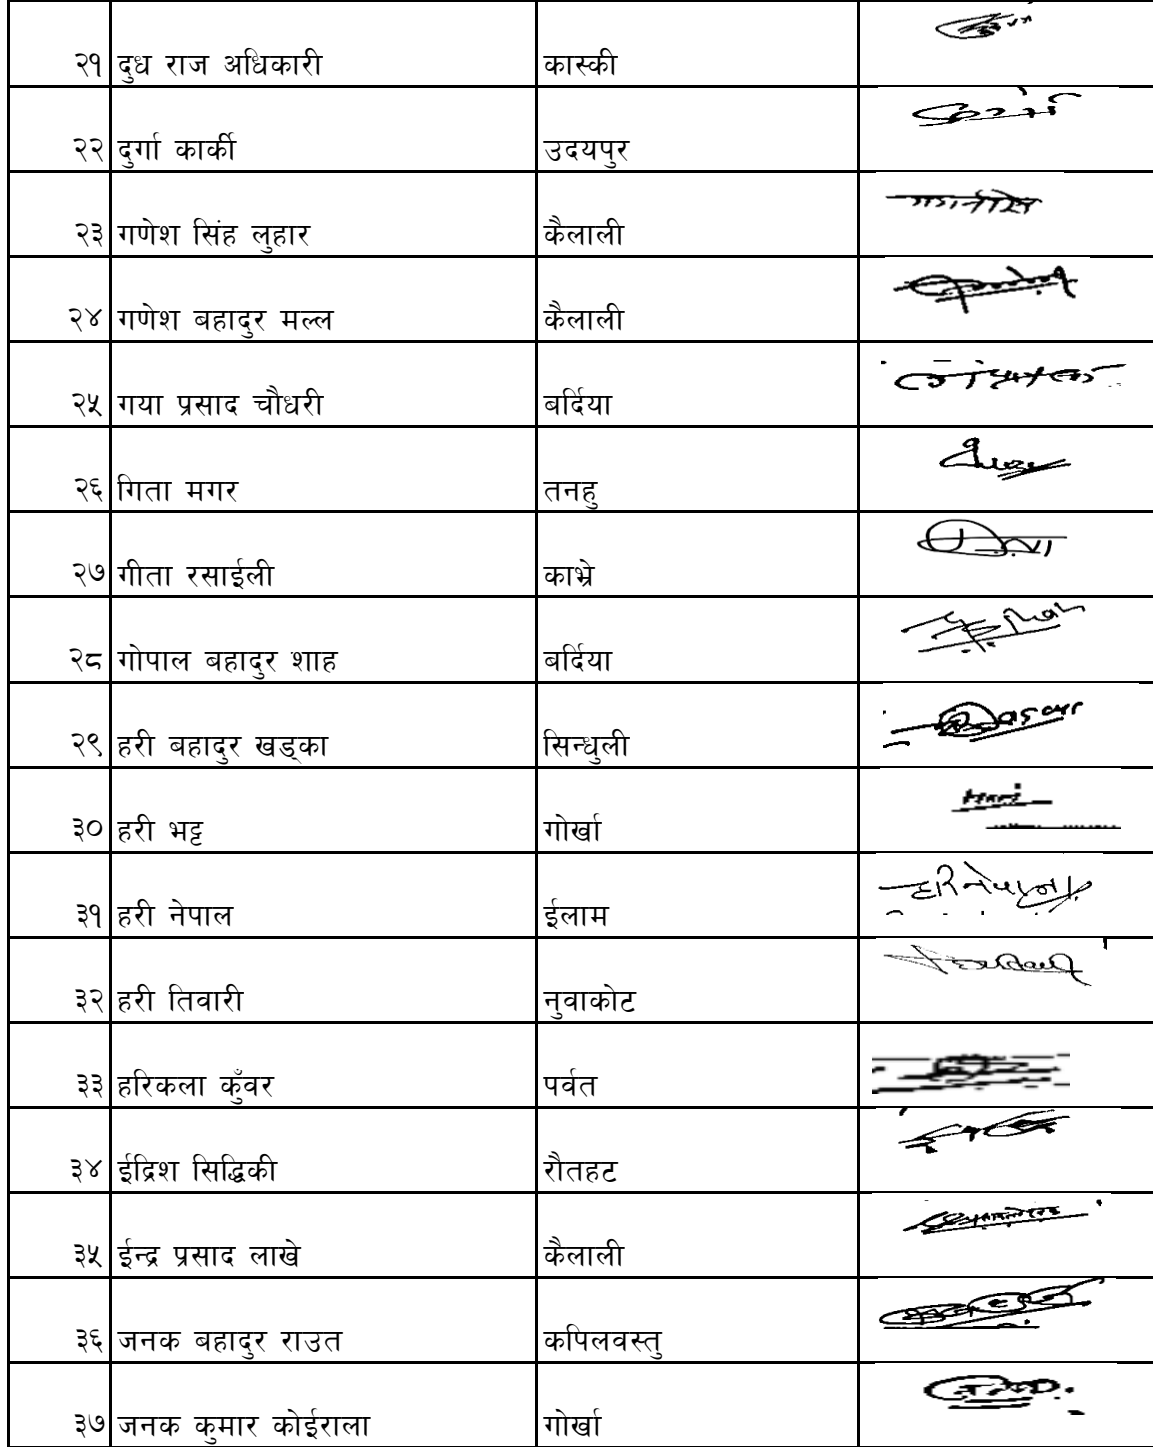 २१ दुध राज अधिकारी कास्की
२२ दुर्गा कार्की उदयपुर
२३ गणेश सिंह लुहार कैलाली
२४ गणेश बहादुर मल्ल कैलाली
२५ गया प्रसाद चौधरी बर्दिया
२६ गिता मगर तनहु
२७ गीता रसाईली काभ्रे
२८ गोपाल बहादुर शाह बर्दिया
२९ हरी बहादुर खड्का सिन्धुली
३० हरी भट्ट गोर्खा
३१ हरी नेपाल ईलाम हरि नेपाल
३२ हरी तिवारी नुवाकोट
३३ हरिकला कुँवर पर्वत
३४ ईद्रिश सिद्धिकी रौतहट
३५ ईन्द्र प्रसाद लाखे कैलाली
३६ जनक बहादुर राउत कपिलवस्तु
३७ जनक कुमार कोईराला गोर्खा